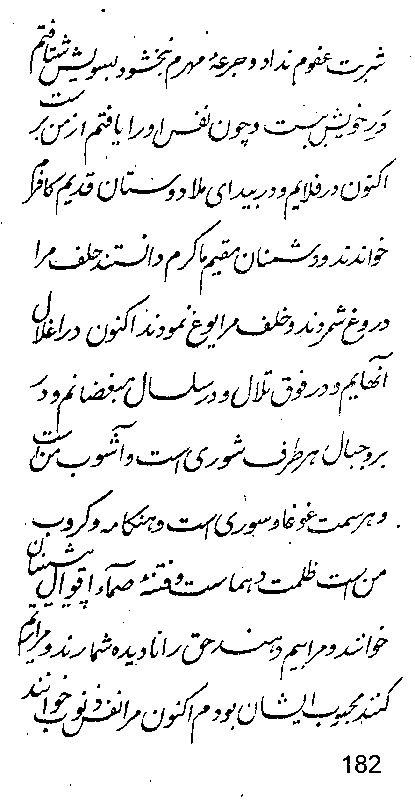 شربت عفوم نداد و جرعهٔ مهرم نبخشود بسویش شتافتم
در خویش بست و چون نفس او را یافتم از من برست
اکنون در فلایم و در بیدای ملا دوستان قدیم کافرم
خواندند و دشمنان مقیم ناکرم دانستند حلف مرا
دروغ شمردند و خلف مرا یوغ نمودند اکنون در اغلال
آنهایم و در فوق تلال و در سلسال مبغضانم و در
بر و جبال هر طرف شوری است و آشوب من است
و هر سمت غوغا و سوری است و هنگامه و کروب
من است ظلمت دهماست و فتنهٔ صمآء اقوال پیشینیان
خوانند و براهیم دهند حق را نادیده شمارند و مرا یتیم
کنند محبوب ایشان بودم اکنون مرا نفس ذنوب خوانند
182